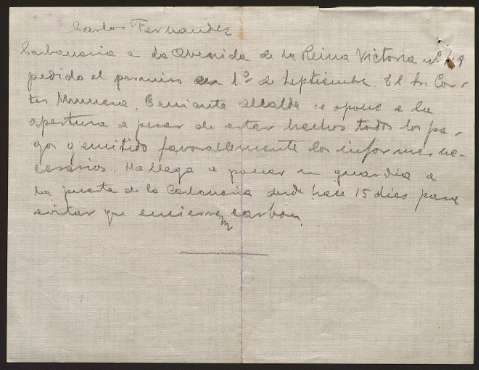 Carlos Fernandez
Carbonería a la Avenida de la Reina Victoria nº 49
pedido el permiso en 1º de Septiembre. El Sr Cor-
tes Munera. Teniente alcalde se opone a la
apertura a pesar de estar hechos todos los pa-
gos y emitido favorablemente los informes ne-
cesarios. Ha llega a poner un guardia a
la puerta de la Carbonería desde hace 15 dias para
evitar que encierren carbon.